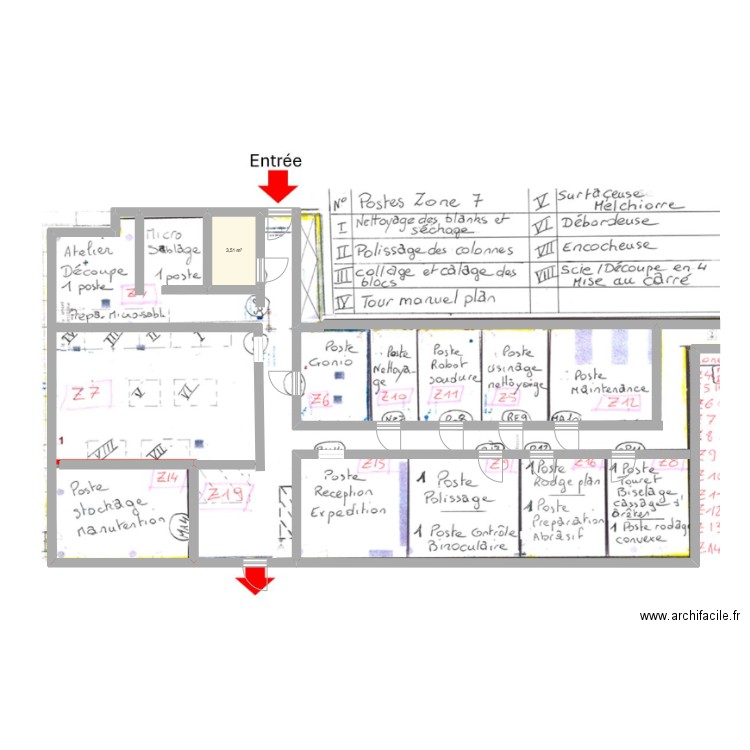 Entrée
N° Postes Zone 7
I Nettoyage des blanks et séchage
II Polissage des colonnes
III collage et calage des blocs
IV Tour manuel plan
V Surfaceuse Melchiorre
VI Débordeuse
VII Encocheuse
VIII Scie/Découpe en 4 Mise au carré
Atelier
Découpe
1 poste
Micro
Sablage
1 poste
3,51 m²
Prépa Microsabl
Z7
V
VI
VIII
VII
1
Poste
Gonio
Z6
Poste
Nettoya-
ge
Z10
Poste
Robot
soudure
Z11
Poste
usinage
nettoyage
Poste
Maintenance
Z12
Poste
stockage
manutention
Z14
MA14
Z19
Poste
Reception
Expedition
Z15
1 Poste
Polissage
1 Poste Contrôle
Binoculaire
1 Poste
Rodge plan
1 Poste
Preparation
Abrasif
Z16
1 Poste
Touret
Biselage
cassage d'
Arêtes
1 Poste rodage
convexe
Z8
www.archifacile.fr